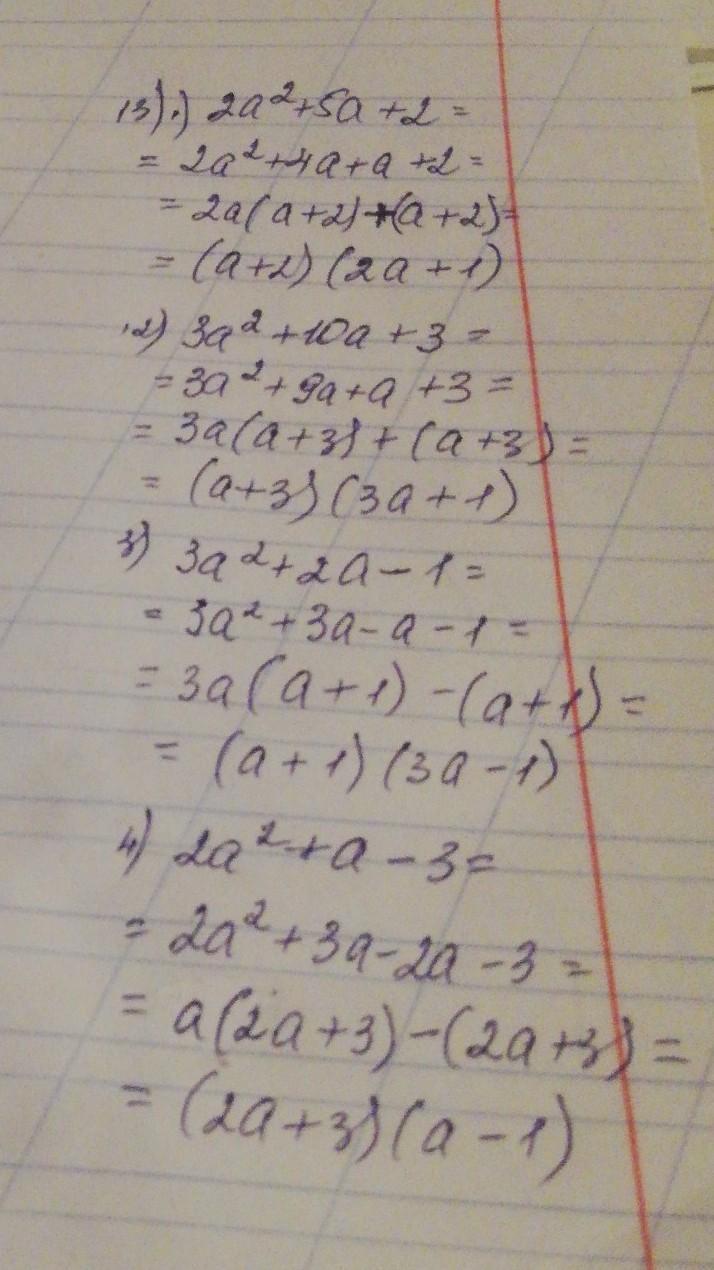 13) 1) 2a²+5a+2=
= 2a²+4a+a+2=
= 2a(a+2)+(a+2)=
= (a+2)(2a+1)
2) 3a²+10a+3=
= 3a²+9a+a+3=
= 3a(a+3)+(a+3)=
= (a+3)(3a+1)
3) 3a²+2a-1=
= 3a²+3a-a-1=
= 3a(a+1)-(a+1)=
= (a+1)(3a-1)
4) 2a²+a-3=
= 2a²+3a-2a-3=
= a(2a+3)-(2a+3)=
= (2a+3)(a-1)